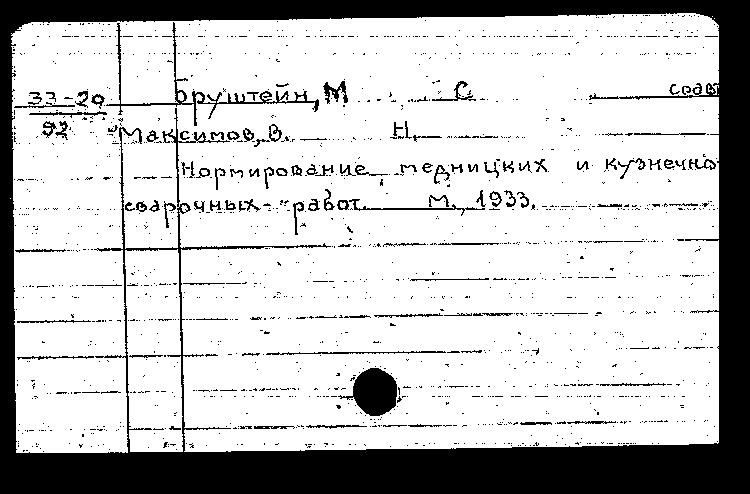 33-20 Бруштейн, М С. соавт
92 Максимов, В. Н.
Нормирование медницких и кузнечно-
сварочных работ. М., 1933.